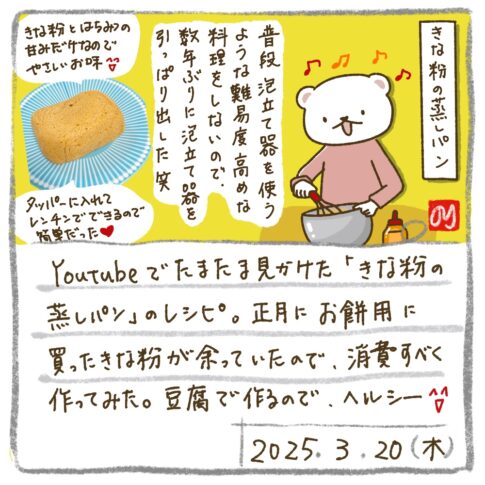 きな粉の蒸しパン
普段泡立て器を使う
ような難易度高めな
料理をしないので、
数年ぶりに泡立て器を
引っぱり出した笑
きな粉とはちみつの
甘みだけなので
やさしいお味
タッパーに入れて
レンチンでできるので
簡単だった♥
Youtubeでたまたま見かけた「きな粉の
蒸しパン」のレシピ。正月にお餅用に
買ったきな粉が余っていたので、消費すべく
作ってみた。豆腐で作るので、ヘルシー
2025.3.20(木)